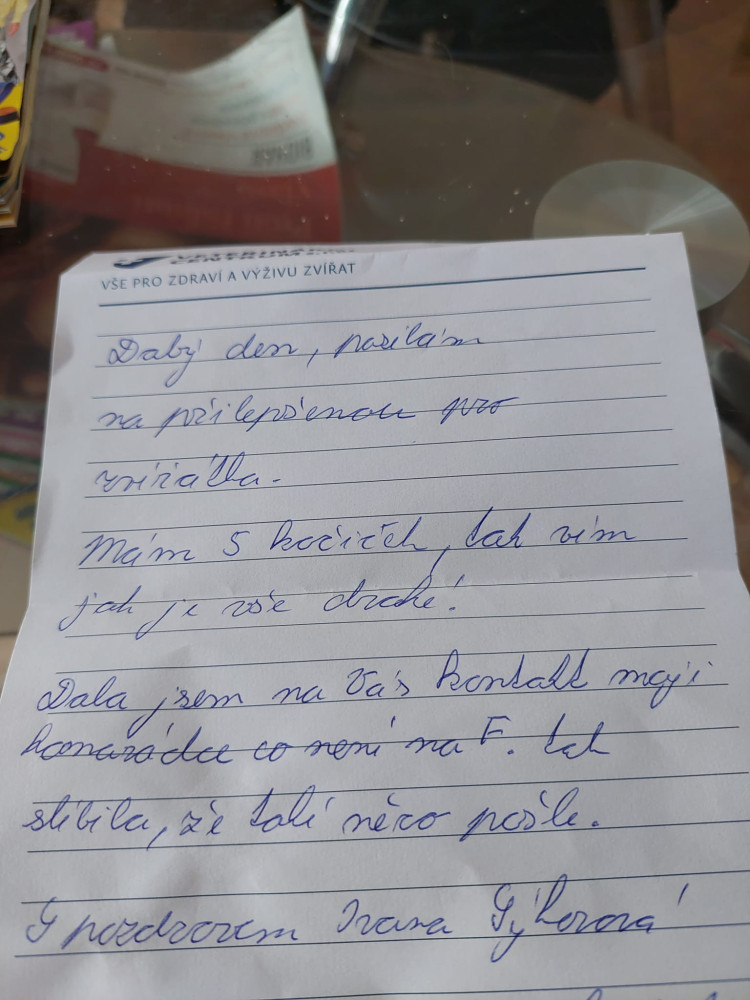 VŠE PRO ZDRAVÍ A VÝŽIVU ZVÍŘAT
Dobrý den, posílám
na přilepšenou pro
zvířátka.
Mám 5 kočiček, tak vím
jak je vše drahé!
Dala jsem na Vás kontakt moji
kamarádce co není na F. tak
slíbila, že taky něco pošle.
S pozdravem Ivana Sýkorová